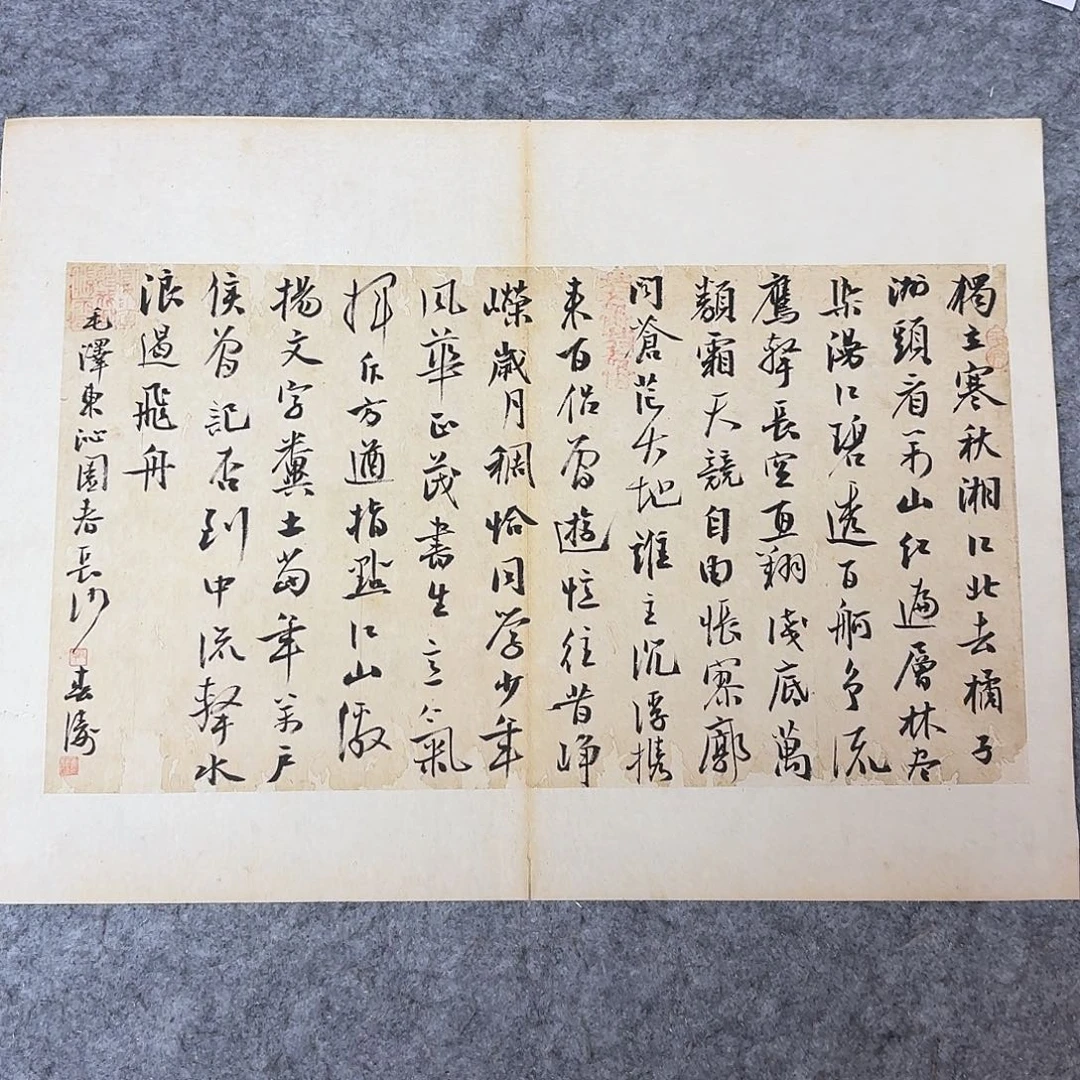 獨立寒秋湘江北去橘子
洲頭看万山紅遍層林尽
染漫江碧透百舸争流
鷹擊長空魚翔淺底萬
類霜天競自由悵寥廓
問蒼茫大地誰主沉浮携
来百侶曾遊忆往昔崢
嶸歲月稠恰同學少年
風華正茂書生意氣
揮斥方遒指點江山激
揚文字糞土當年萬户
侯曾記否到中流擊水
浪遏飛舟
毛澤東沁園春長沙 春濤